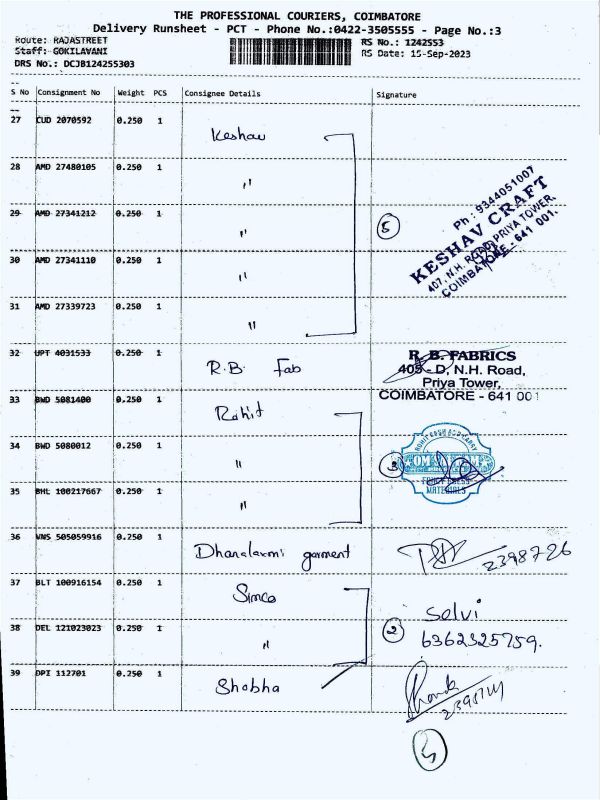 THE PROFESSIONAL COURIERS, COIMBATORE
Delivery Runsheet - PCT - Phone No.:0422-3505555 - Page No.:3
Route: RAJASTREET
RS No.: 1242553
Staff: GOKILAVANI
RS Date: 15-Sep-2023
DRS No.: DCJB124255303
S No Consignment No Weight PCS Consignee Details Signature
27 CUD 2070592 0.250 1 Keshav
28 AMD 27480105 0.250 1 "
29 AMD 27341212 0.250 1 "
30 AMD 27341110 0.250 1 "
31 AMD 27339723 0.250 1 "
5
Ph : 9344051007
KESHAV CRAFT
407, N.H. ROAD, PRIYA TOWER,
COIMBATORE - 641 001.
32 UPT 4031533 0.250 1 R.B. Fab
R. B. FABRICS
405 - D, N.H. Road,
Priya Tower,
COIMBATORE - 641 001
33 BWD 5081400 0.250 1 Rohit
34 BWD 5080012 0.250 1 "
35 BHL 100217667 0.250 1 "
3
OM
MATERIALS
36 VNS 505059916 0.250 1 Dhanalaxmi garment
2398726
37 BLT 100916154 0.250 1 Simco
38 DEL 121023023 0.250 1 "
2
Selvi
6362325759.
39 DPI 112701 0.250 1 Shobha